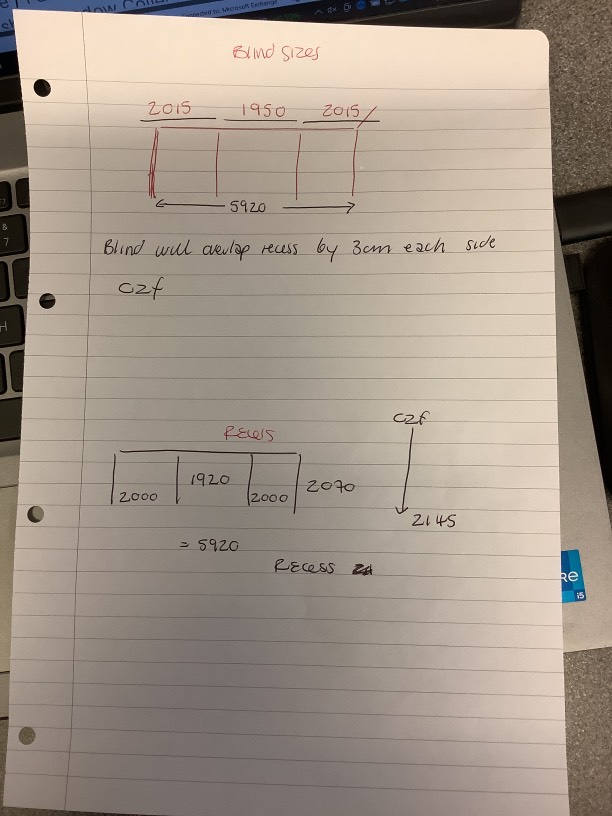 Blind sizes
2015 1950 2015
5920
Blind will overlap recess by 3cm each side
czf
czf
Recess
2000 1920 2000 2070
2145
= 5920
Recess
i5
&
7
H